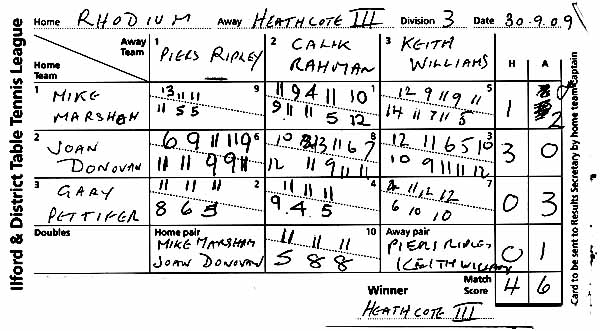 Ilford & District Table Tennis League
Home RHODIUM Away HEATHCOTE III Division 3 Date 30.9.09
Away Team 1 PIERS RIPLEY 2 CALIK RAHMAN 3 KEITH WILLIAMS H A
Home Team
1 MIKE MARSHAM 9 13 11 11 1 11 9 4 11 10 5 12 9 11 9 11 1 2
11 5 5 9 11 11 5 12 14 11 7 11 5
2 JOAN DONOVAN 6 6 9 11 11 9 8 10 13 11 6 7 3 12 11 6 5 10 3 0
11 11 9 9 11 12 11 9 11 11 10 9 11 11 12
3 GARY PETTIFER 2 11 11 11 4 11 11 11 7 11 12 12 0 3
8 6 5 9 4 5 6 10 10
Doubles Home pair MIKE MARSHAM JOAN DONOVAN 10 11 11 11 Away pair PIERS RIPLEY KEITH WILLIAMS 0 1
5 8 8
Match Score 4 6
Winner HEATHCOTE III
Card to be sent to Results Secretary by home team captain